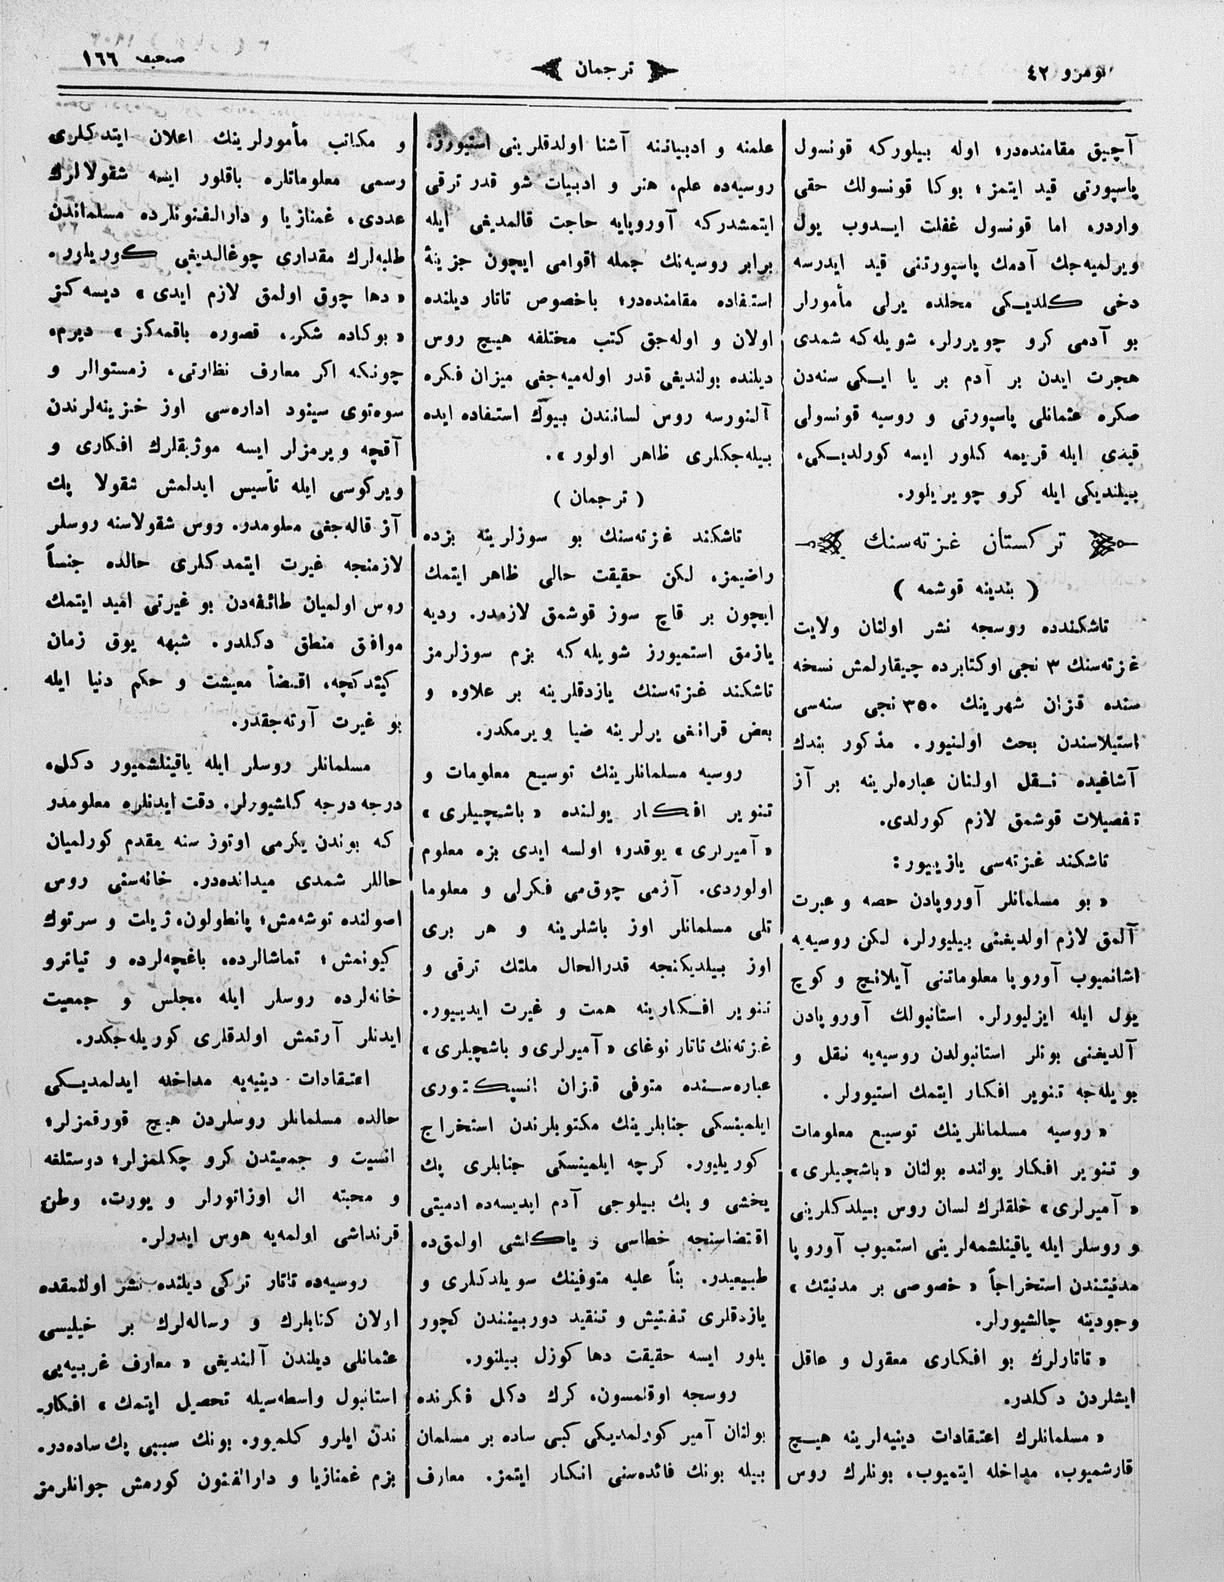 نومرو ٤٢
ترجمان
صحیفه ١٦٦
آچیق مقامنده‌در؛ اوله بیلورکه قونسول
پاسپورتی قید ایتمز؛ بوکا قونسولك حقی
واردر، اما قونسول غفلت ایدوب یول
ویرلمیه‌جك آدمك پاسپورتنی قید ایدرسه
دخی کلدیکی محلده یرلی مأمورلر
بو آدمی کرو چویررلر، شویله‌که شمدی
هجرت ایدن بر آدم بر یا ایکی سنه‌دن
صکره عثمانلی پاسپورتی و روسیه قونسولی
قیدی ایله قریمه کلور ایسه کورلدیکی،
بیلندیکی ایله کرو چویریلور.
ترکستان غزته‌سنك
( بندینه قوشمه )
تاشکندده روسجه نشر اولنان ولایت
غزته‌سنك ٣ نجی اوکتابرده چیقارلمش نسخه
سنده قزان شهرینك ٣٥٠ نجی سنه‌سی
استیلاسندن بحث اولنیور. مذکور بندك
آشاغیده نقل اولنان عباره‌لرینه بر آز
تفصیلات قوشمق لازم کورلدی.
تاشکند غزته‌سی یازییور:
« بو مسلمانلر آوروپادن حصه و عبرت
آلمق لازم اولدیغنی بیلیورلر، لکن روسیه‌یه
اشانمیوب آوروپا معلوماتنی آیلانچ و کوچ
یول ایله ایزلیورلر. استانبولك آوروپادن
آلدیغنی بونلر استانبولدن روسیه‌یه نقل و
بویله‌جه تنویر افکار ایتمك استیورلر.
« روسیه مسلمانلرینك توسیع معلومات
و تنویر افکار یولنده بولنان « باشچیلری »
« آمیرلری » خلقلرك لسان روس بیلدکلرینی
و روسلر ایله یاقینلشمه‌لرینی استمیوب آوروپا
مدنیتندن استخراجاً « خصوصی بر مدنیتك »
وجودینه چالشیورلر.
« تاتارلرك بو افکاری معقول و عاقل
ایشلردن دکلدر.
« مسلمانلرك اعتقادات دینیه‌لرینه هیچ
قارشمیوب، مداخله ایتمیوب، بونلرك روس
علمنه و ادبیاتنه آشنا اولدقلرینی استیورز.
روسیه‌ده علم، هنر و ادبیات شو قدر ترقی
ایتمشدرکه آوروپایه حاجت قالمدیغی ایله
برابر روسیه‌نك جمله اقوامی ایچون جزینهٔ
استفاده مقامنده‌در؛ باخصوص تاتار دیلنده
اولان و اوله‌جق کتب مختلفه هیچ روس
دیلنده بولندیغی قدر اوله‌میه‌جغی میزان فکره
آلنورسه روس لساندن بیوك استفاده ایده
بیله‌جکلری ظاهر اولور ».
( ترجمان )
تاشکند غزته‌سنك بو سوزلرینه بزده
راضیمز، لکن حقیقت حالی ظاهر ایتمك
ایچون بر قاچ سوز قوشمق لازمدر. ردیه
یازمق استمیورز شویله‌که بزم سوزلرمز
تاشکند غزته‌سنك یازدقلرینه بر علاوه و
بعض قرانغی یرلرینه ضیا ویرمکدر.
روسیه مسلمانلرینك توسیع معلومات و
تنویر افکار یولنده « باشچیلری »
« آمیرلری » یوقدر؛ اولسه ایدی بزه معلوم
اولوردی. آزمی چوق‌می فکرلی و معلوما
تلی مسلمانلر اوز باشلرینه و هر بری
اوز بیلدیکنجه قدرالحال ملتك ترقی و
تنویر افکارینه همت و غیرت ایدییور.
غزته‌نك تاتار نوغای « آمیرلری و باشچیلری »
عباره‌سنده متوفی قزان انسپکتوری
ایلمینسکی جنابلرینك مکتوبلرندن استخراج
کوریلیور. کرچه ایلمینسکی جنابلری پك
یخشی و پك بیلوجی آدم ایدیسه‌ده ادمیتی
اقتضاسنجه خطاسی و یاکلشی اولمق‌ده
طبیعیدر. بناً علیه متوفینك سویلدکلری و
یازدقلری تفتیش و تنقید دوربینندن کچور
یلور ایسه حقیقت دها کوزل بیلنور.
روسجه اوقلنمسون، کرك دکل فکرنده
بولنان آمیر کورلمدیکی کبی ساده بر مسلمان
بیله بونك فائده‌سنی انکار ایتمز. معارف
و مکاتب مأمورلرینك اعلان ایتدکلری
رسمی معلوماتلره باقلور ایسه شقولالرك
عددی، غمنازیا و دارالفنونلرده مسلماندن
طلبه‌لرك مقداری چوغالدیغی کوریلور.
« دها چوق اولمق لازم ایدی » دیسه‌کز
« بوکاده شکر، قصوره باقمه‌کز » دیرم،
چونکه اکر معارف نظارتی، زمستوالر و
سوه‌توی سینود اداره‌سی اوز خزینه‌لرندن
آقچه ویرمزلر ایسه موژیقلرك افکاری و
ویرکوسی ایله تأسیس ایدلمش شقولا پك
آز قاله‌جغی معلومدر. روس شقولاسنه روسلر
لازمنجه غیرت ایتمدکلری حالده جنساً
روس اولمیان طائفه‌دن بو غیرتی امید ایتمك
موافق منطق دکلدر. شبهه یوق زمان
کیتدکچه، اقتضأ معیشت و حکم دنیا ایله
بو غیرت آرته‌جقدر.
مسلمانلر روسلر ایله یاقینلشمیور دکل،
درجه درجه کلشیورلر. دقت ایدنلره معلومدر
که بوندن یکرمی اوتوز سنه مقدم کورلمیان
حاللر شمدی میدانده‌در. خانه‌سنی روس
اصولنده توشه‌مش؛ پانطولون، ژیلت و سرتوك
کیونمش؛ تماشالرده، باغچه‌لرده و تیاترو
خانه‌لرده روسلر ایله مجلس و جمعیت
ایدنلر آرتمش اولدقلری کوریله‌جکدر.
اعتقادات دینیه‌یه مداخله ایدلمدیکی
حالده مسلمانلر روسلردن هیچ قورقمزلر؛
انسیت و جمعیتدن کرو چکلمزلر؛ دوستلغه
و محبته ال اوزاتورلر و یورت، وطن
قرنداشی اولمه‌یه هوس ایدرلر.
روسیه‌ده تاتار ترکی دیلنده نشر اولنمقده
اولان کتابلرك و رساله‌لرك بر خیلیسی
عثمانلی دیلندن آلندیغی « معارف غربیه‌یی
استانبول واسطه‌سیله تحصیل ایتمك » افکار-
ندن ایلرو کلمیور. بونك سببی پك ساده‌در.
بزم غمنازیا و دارالفنون کورمش جوانلرمز